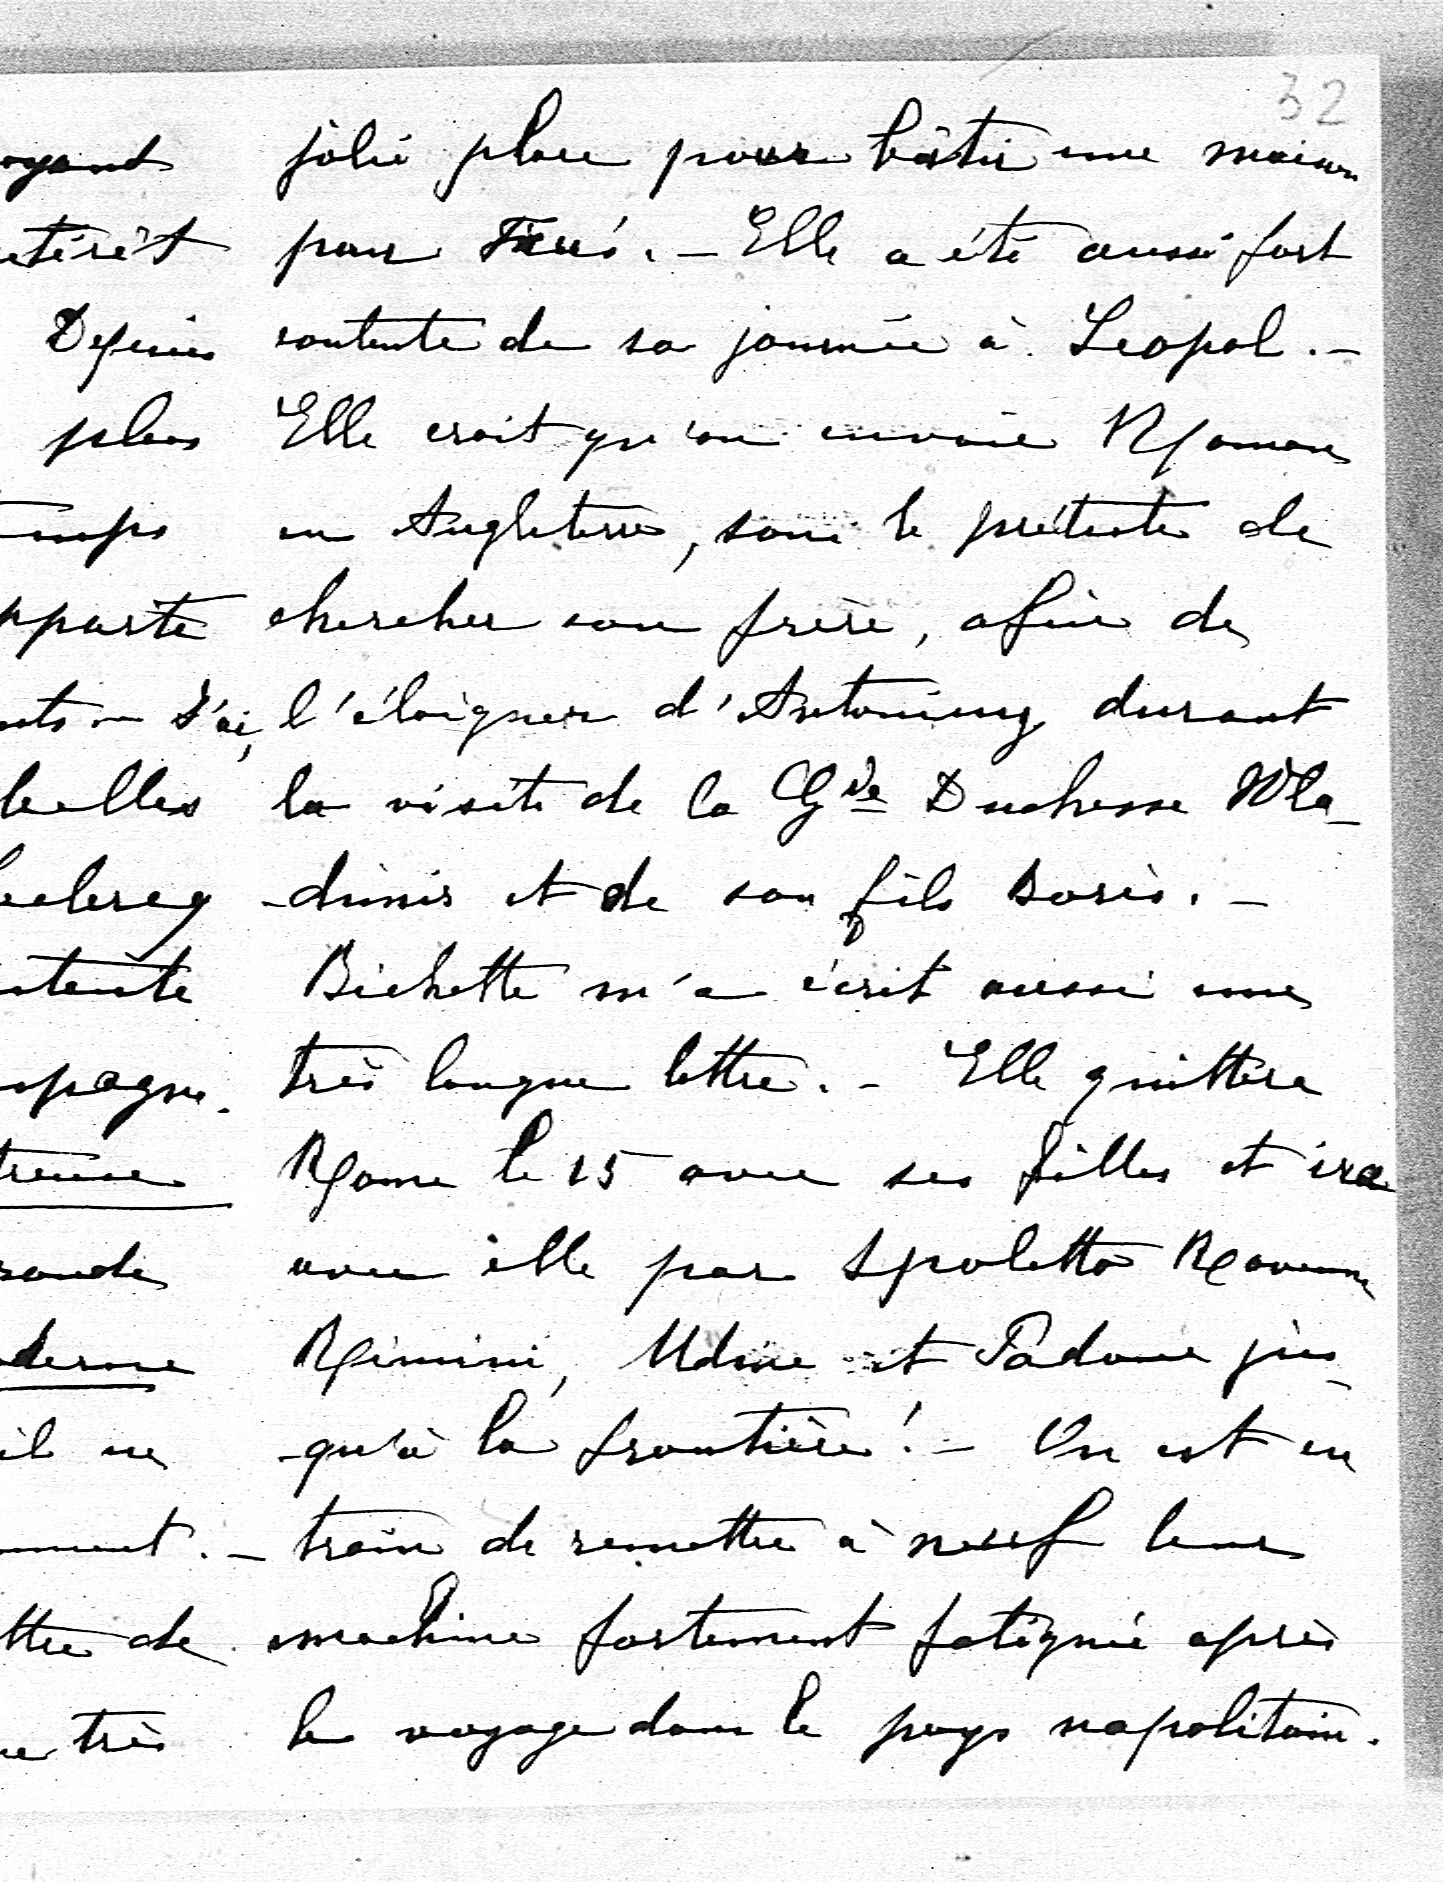 32
jolie place pour bâtir une maison
pour - Elle a été aussi fort
contente de sa journée à Leopol. -
Elle croit qu'on envoie Roman
en Angleterre, sous le prétexte de
chercher son frère, afin de
l'éloigner d'Antoniny durant
la visite de la Gde Duchesse Wla-
-dimir et de son fils Boris. -
Bichette m'a écrit aussi une
très longue lettre. - Elle quittera
Rome le 15 avec ses filles et ira
avec elle par Spoletto Ravenne
Rimini, Udine et Padoue jus-
-qu'à la frontière! - On est en
train de remettre à neuf leur
machine fortement fatiguée après
le voyage dans le pays napolitain.